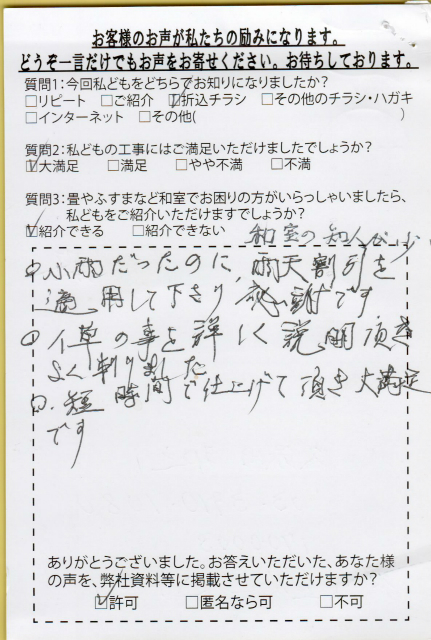 お客様のお声が私たちの励みになります。
どうぞ一言だけでもお声をお寄せください。お待ちしております。
質問1:今回私どもをどちらでお知りになりましたか?
□リピート □ご紹介 ☑折込チラシ □その他のチラシ・ハガキ
□インターネット □その他( )
質問2:私どもの工事にはご満足いただけましたでしょうか?
☑大満足 □満足 □やや不満 □不満
質問3:畳やふすまなど和室でお困りの方がいらっしゃいましたら、
私どもをご紹介いただけますでしょうか?
☑紹介できる □紹介できない 和室の知人が少
小雨だったのに、雨天割引を
適用して下さり感謝です
イ草の事を詳しく説明頂き
よく判りました
短時間で仕上げて頂き大満足
です
ありがとうございました。お答えいただいた、あなた様
の声を、弊社資料等に掲載させていただけますか?
☑許可 □匿名なら可 □不可